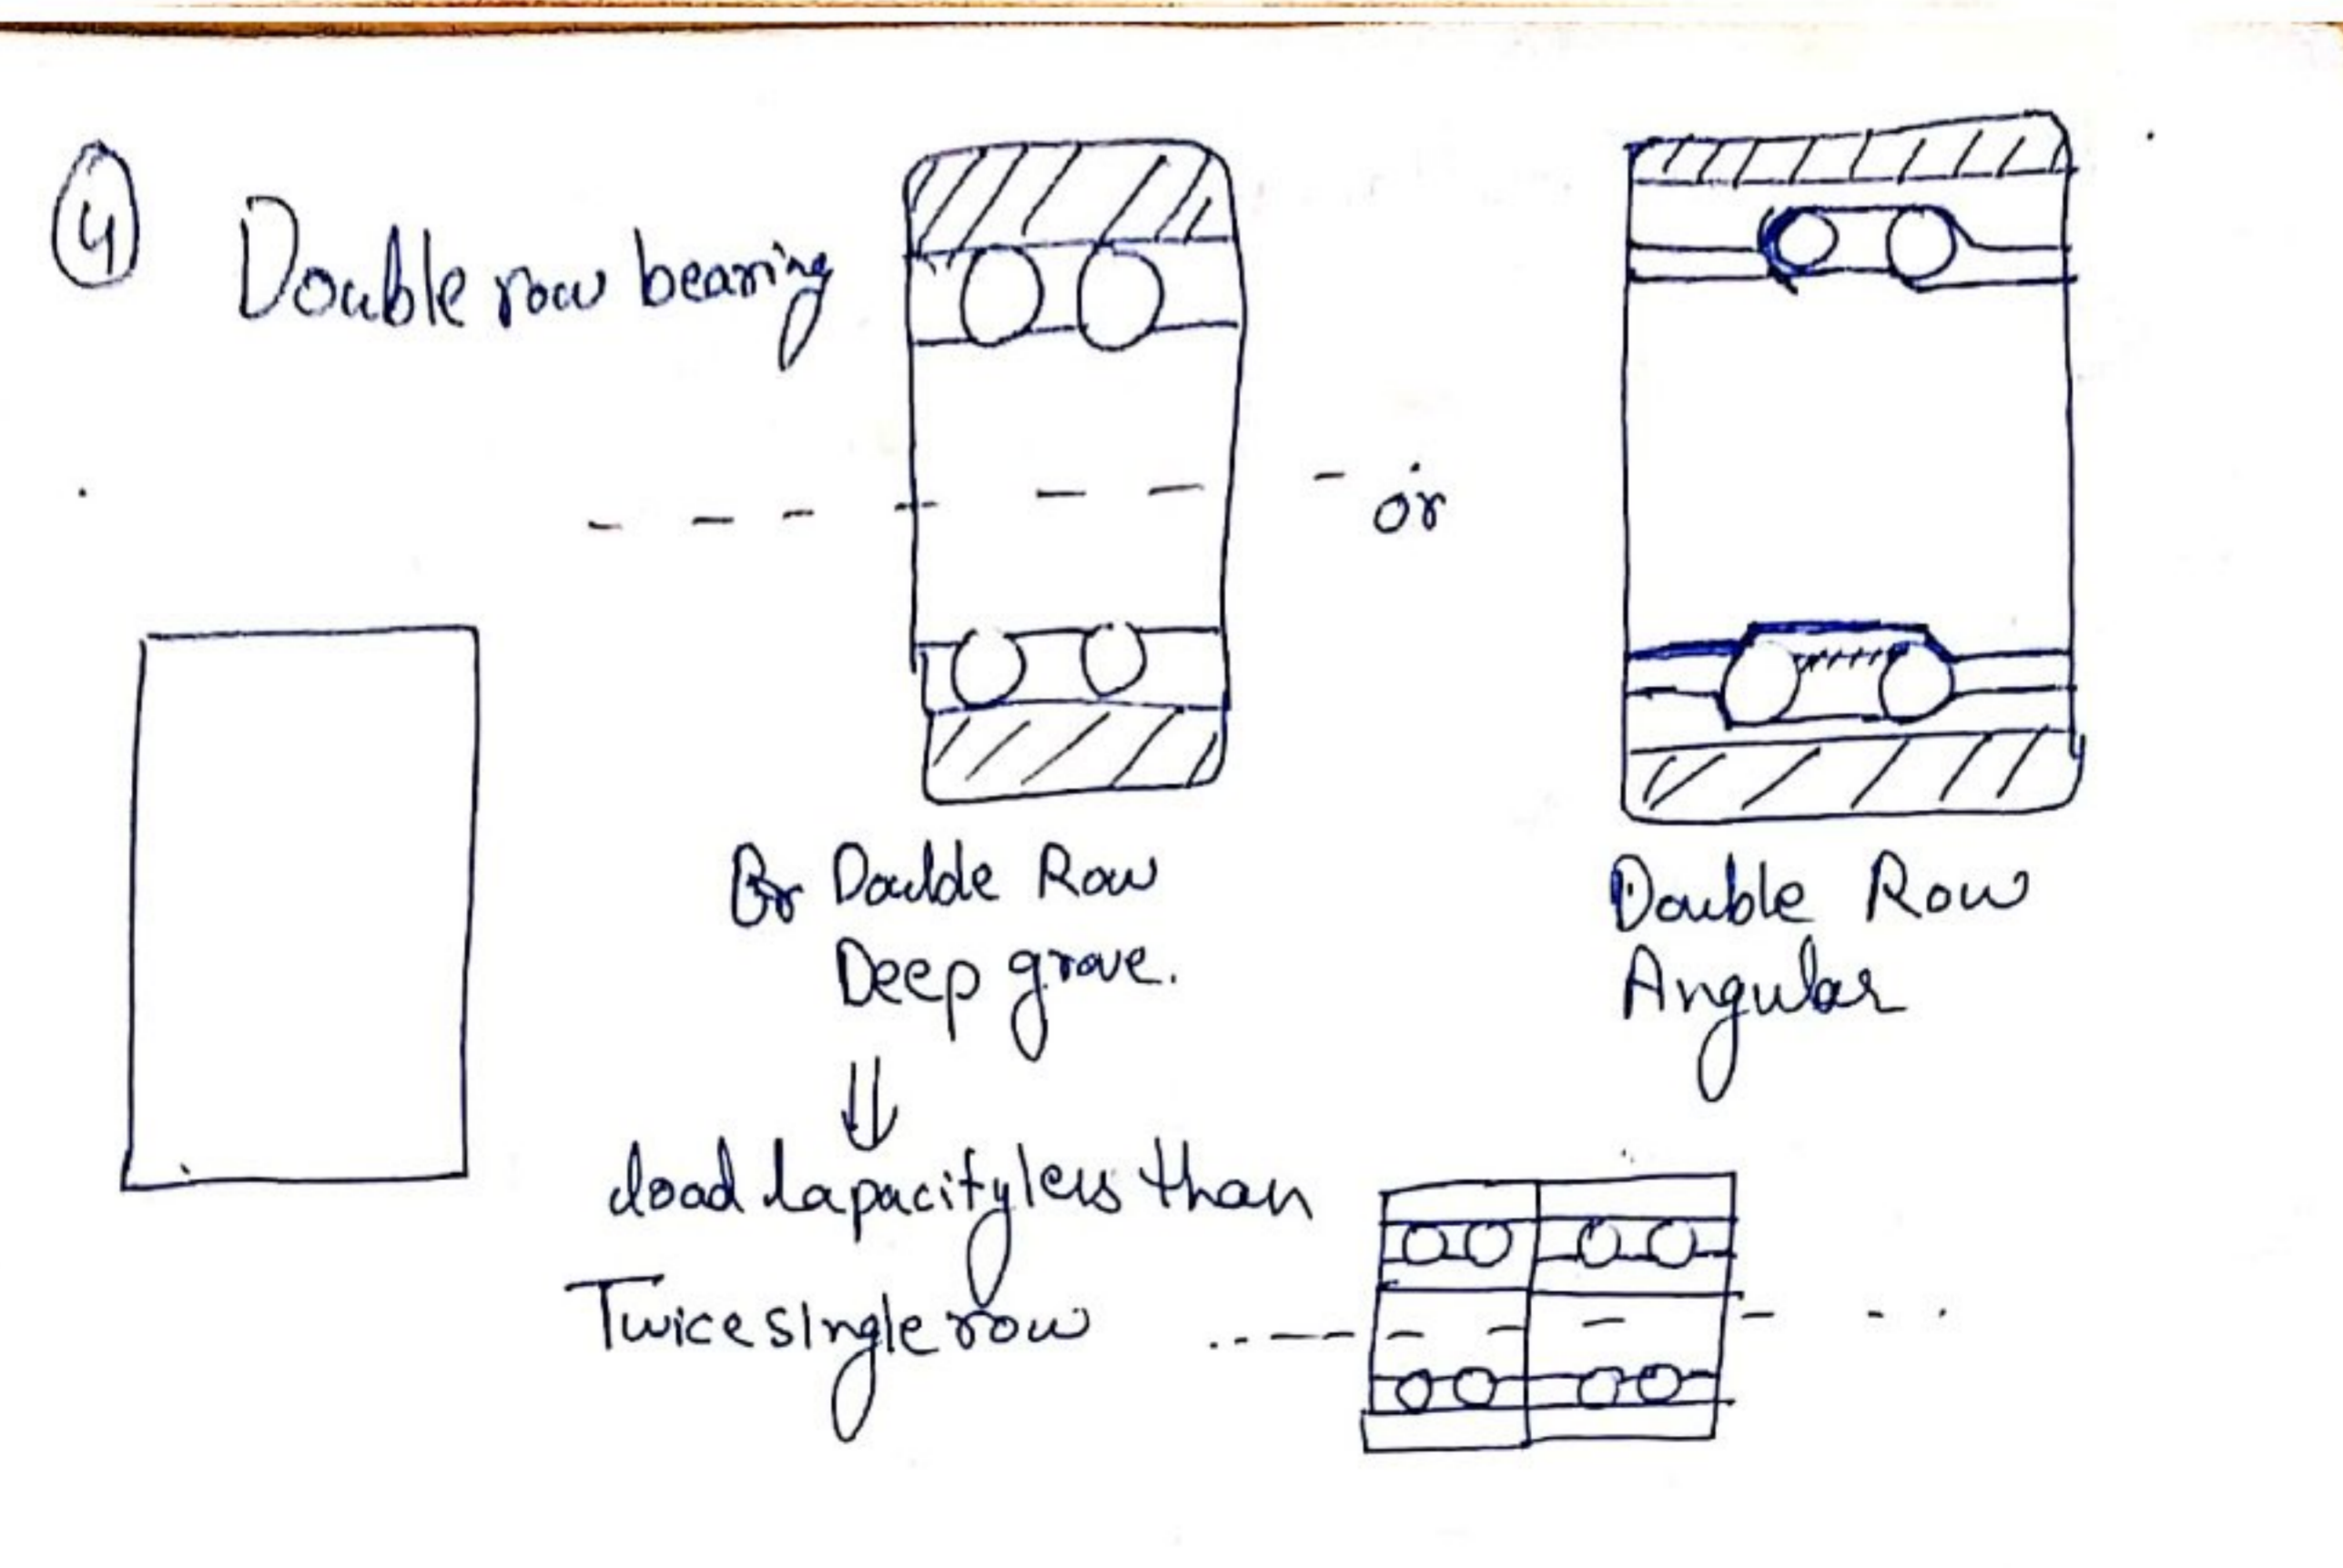 4
Double row bearing
or
Or Doulde Row
Deep grove.
Double Row
Angular
⇓
load Capacity less than
Twice single row